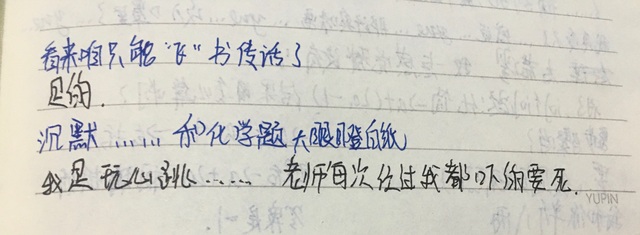 看来咱只能“飞”书传话了
是的.
沉默……和化学题大眼瞪白纸
我是玩心跳……老师每次经过我都吓的要死.
YUPIN